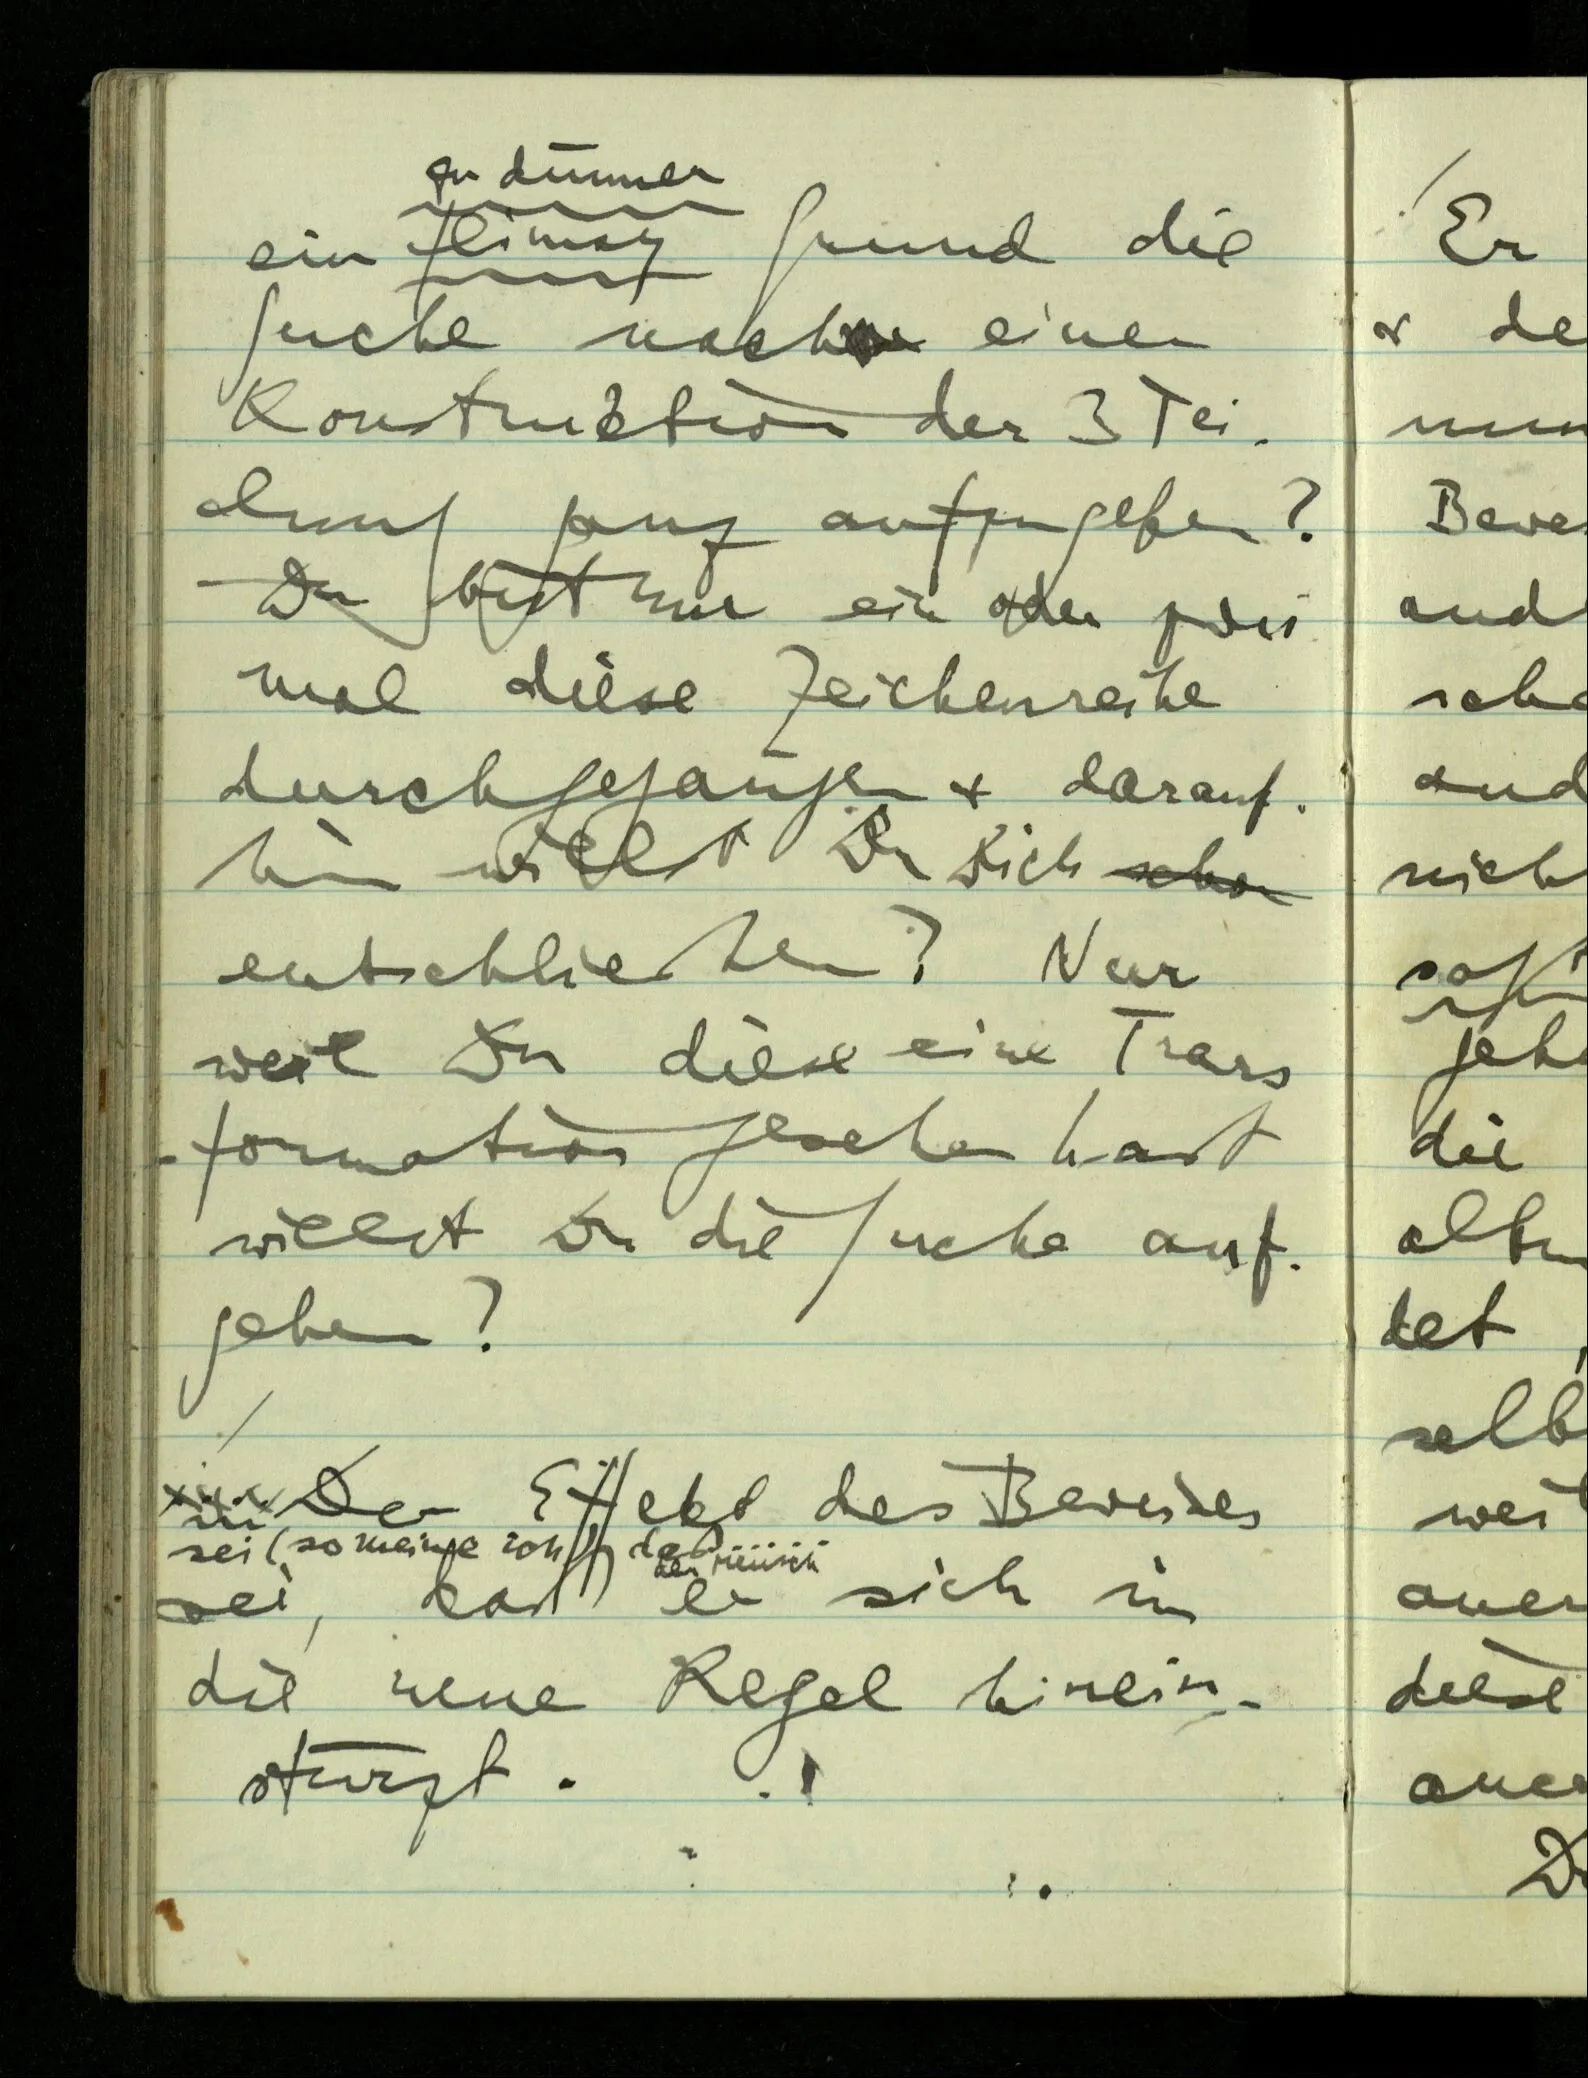 zu dünner
ein flimsy Grund die
Suche nach einer
Konstruktion der 3 Tei-
lung ganz aufzugeben?
Du bist nur ein oder zwei
mal diese Zeichenreihe
durchgegangen & darauf-
hin willst Du Dich schon
entschließen? Nur
weil Du diese eine Trans
formation gesehen hast
willst Du die Suche auf-
geben?
/
Der Effekt des Beweises
sei (so meine ich) daß
der Mensch
sei, daß er sich in
die neue Regel hinein-
stürzt.
/
Er
& de
nun
Bewe
and
scho
and
nich
gehe
die
alten
det
selb
wei
aner
diese
aner